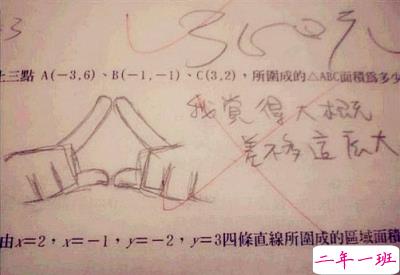 上三點 A(-3,6)、B(-1,-1)、C(3,2),所圍成的△ABC面積為多少
我覺得大概
差不多這麼大
由x=2,x=-1,y=-2,y=3四條直線所圍成的區域面積
二年一班